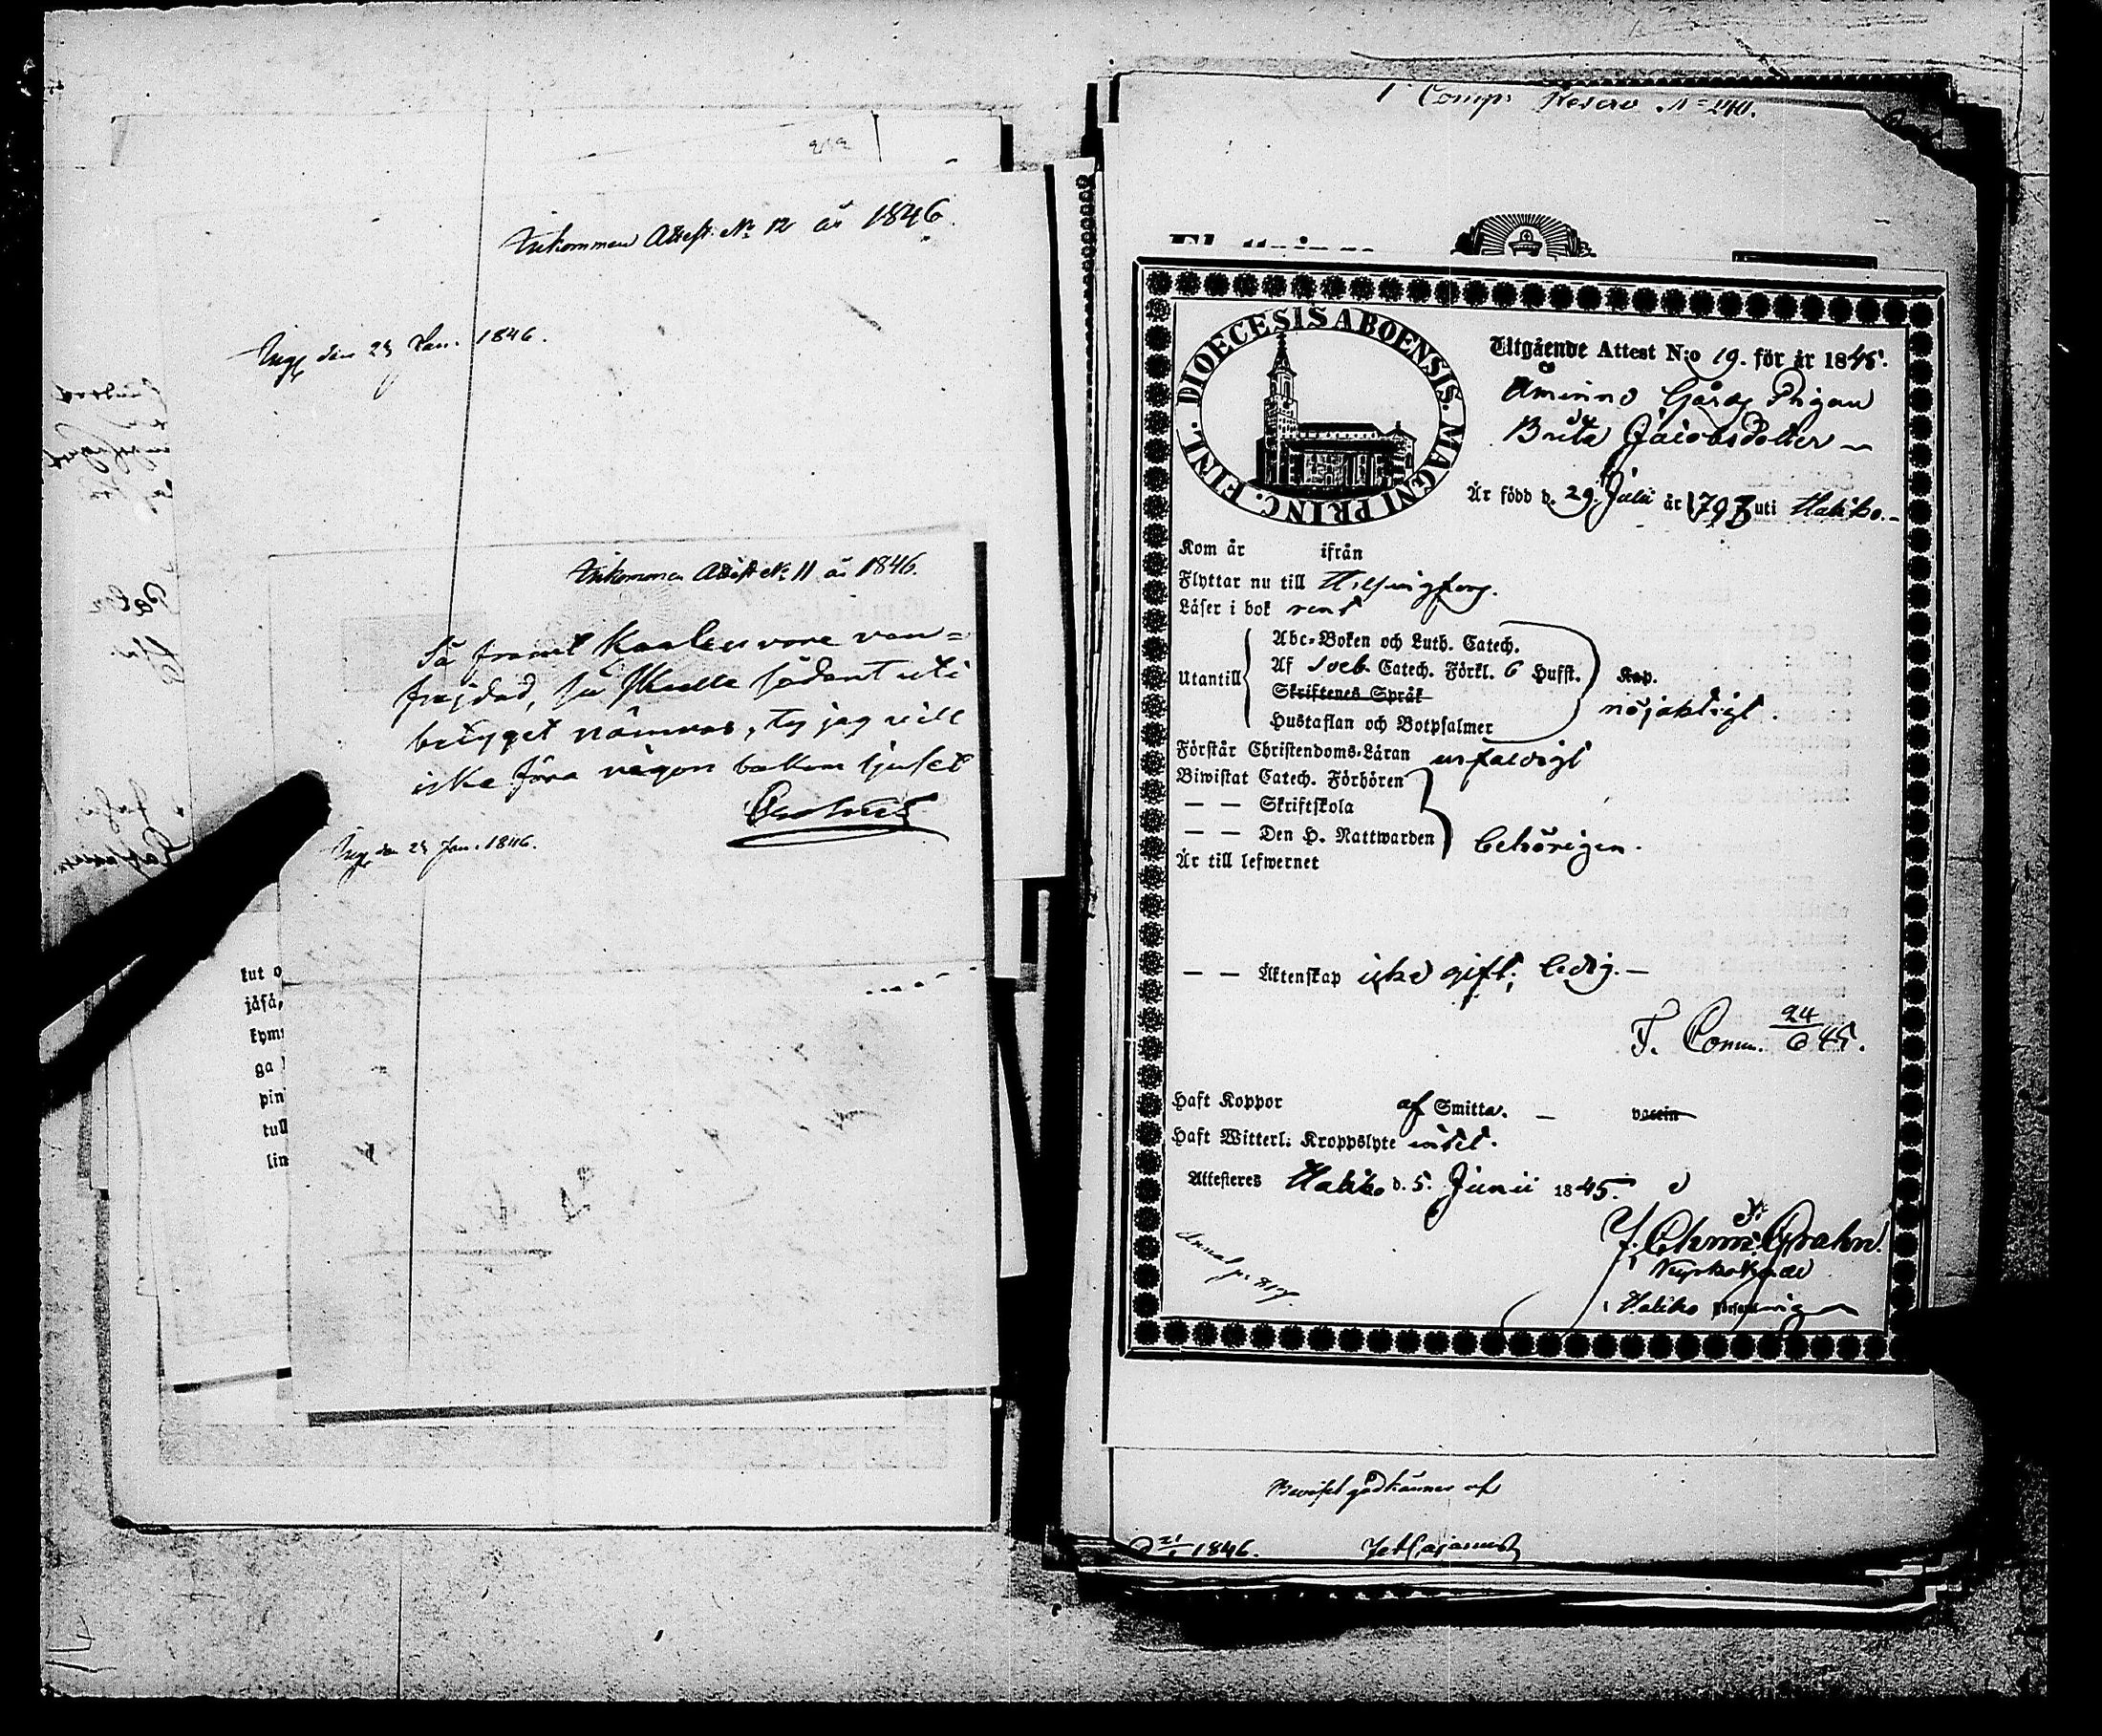 Inkommen Attest No 12 år 1846.
Uppv den 23 Jan. 1846.
Inkommen Attest No 11 år 1846.
Så framt Karlen vore van=
frejdad, så skulle sådant uti
betyget nämnas, ty jag vill
icke föra någon bakom ljuset
den 23 Jan. 1846.
kut o
jäsä,
kym
ga
pin
tull
lin
1 Comp. Reserv No 240.
DIOECESIS ABOENSIS. MAGNI PRINC. FINL.
Utgående Attest N:o 19. för år 1845.
Åminne Gårds Pigan
Brita Jacobsdotter
Är född d. 29. Julii år 1797 uti Haliko.
Kom år ifrån
Flyttar nu till Helsingfors.
Läser i bok rent
Utantill
Abc-Boken och Luth. Catech.
Af Sveb. Catech. Förkl. 6 Hufst. Kap.
Skriftenes Språk
nöjaktigt.
Hustaflan och Botpsalmer
Förstår Christendoms-Läran enfaldigt
Biwistat Catech. Förhören
— — Skriftskola
— — Den H. Nattwarden behörigen.
Är till lefwernet
— — Äktenskap icke gift; ledig.—
F. Comm. 24/6 45.
Haft Koppor af Smitta. — vaccin
Haft Witterl. Kroppslyte intet.
Attesteres Haliko d. 5. Junii 1845.
Grahn.
Kyrkoherde
i Haliko
Beviset godkännes af
1846.